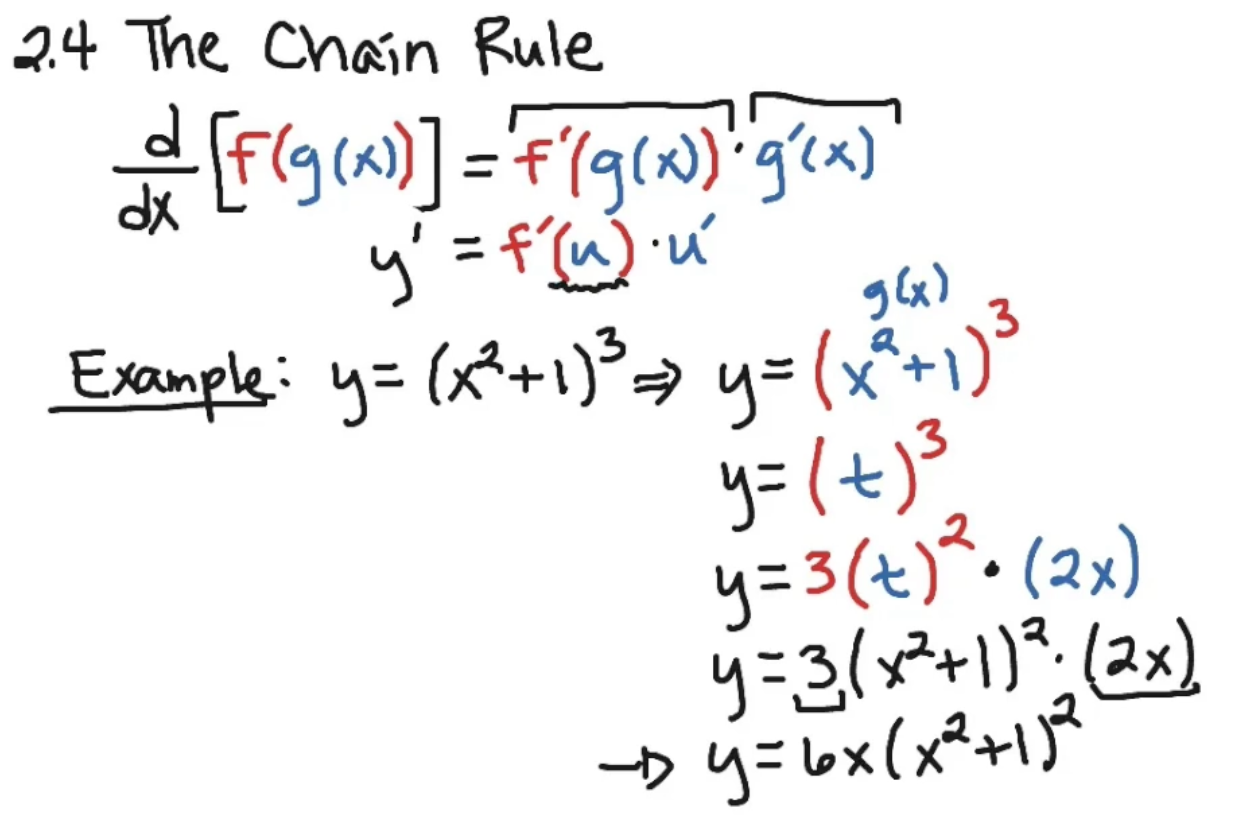 2.4 The Chain Rule
d/dx [f(g(x))] = f'(g(x)) · g'(x)
y' = f'(u) · u'
g(x)
Example: y = (x²+1)³ ⇒ y = (x²+1)³
y = (t)³
y = 3(t)² · (2x)
y = 3(x²+1)² · (2x)
→ y = 6x(x²+1)²